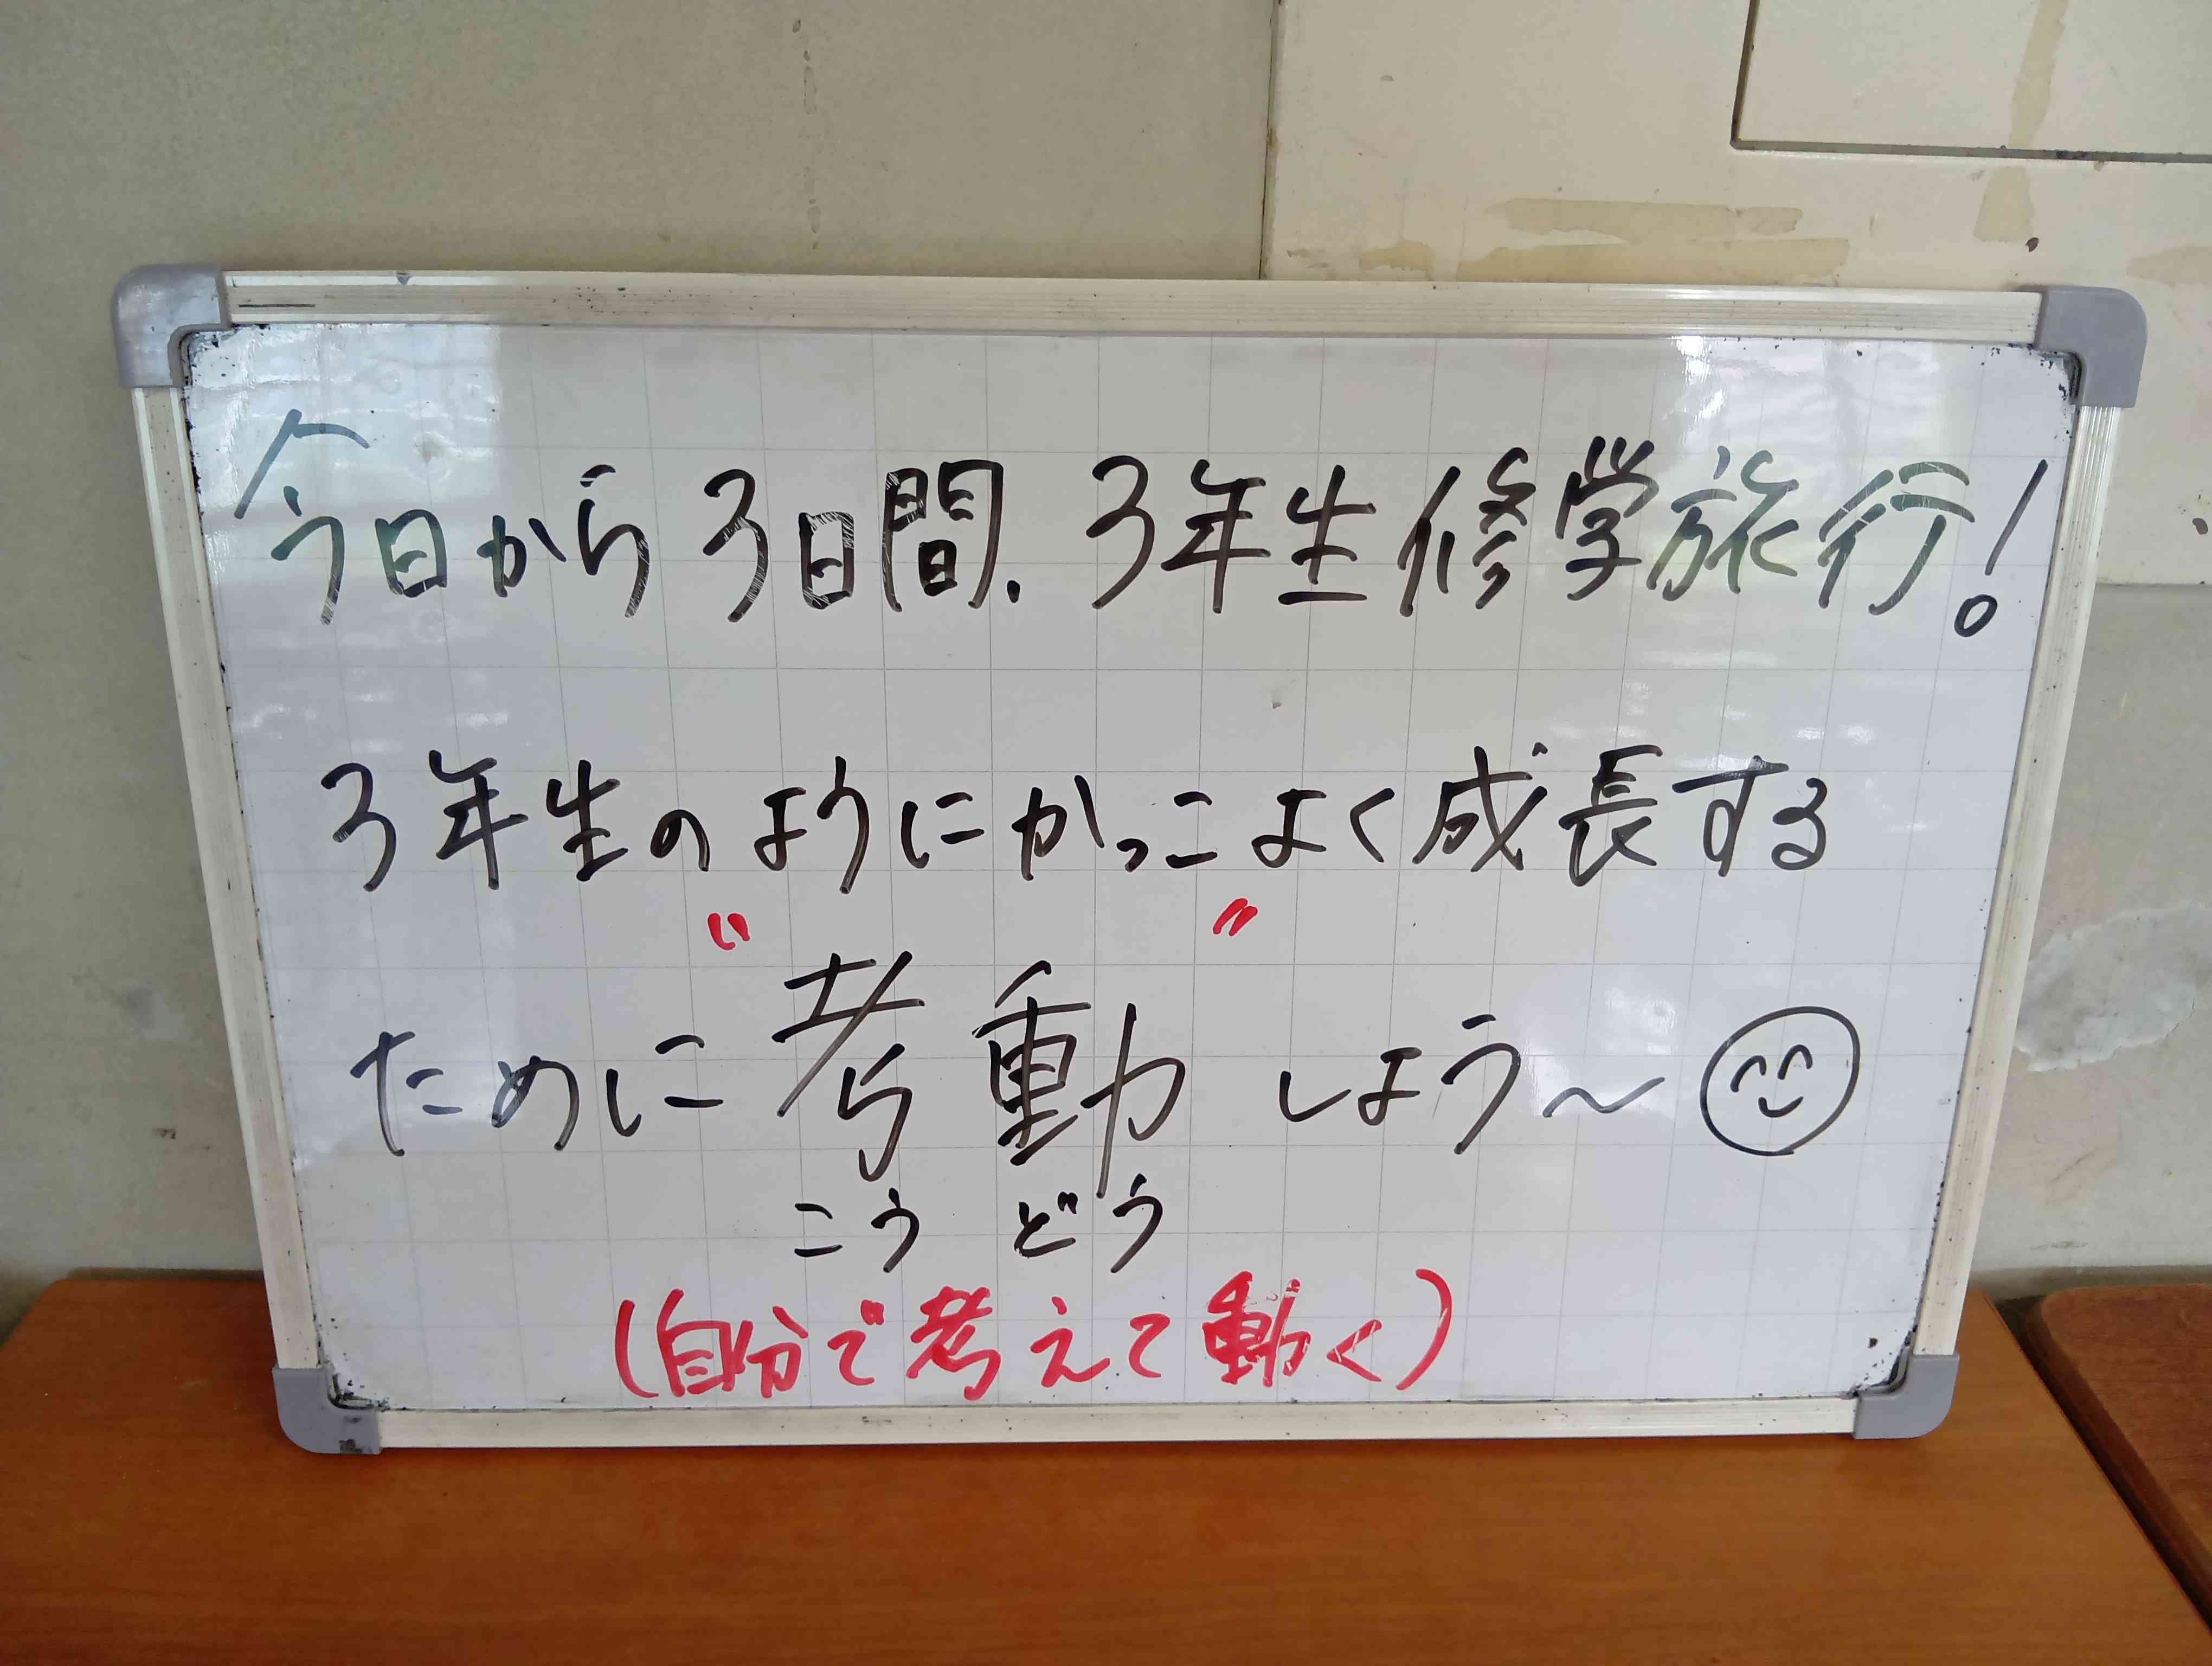 今日から3日間、3年生修学旅行!
3年生のようにかっこよく成長する
ために"考動"しよう〜
こうどう
(自分で考えて動く)